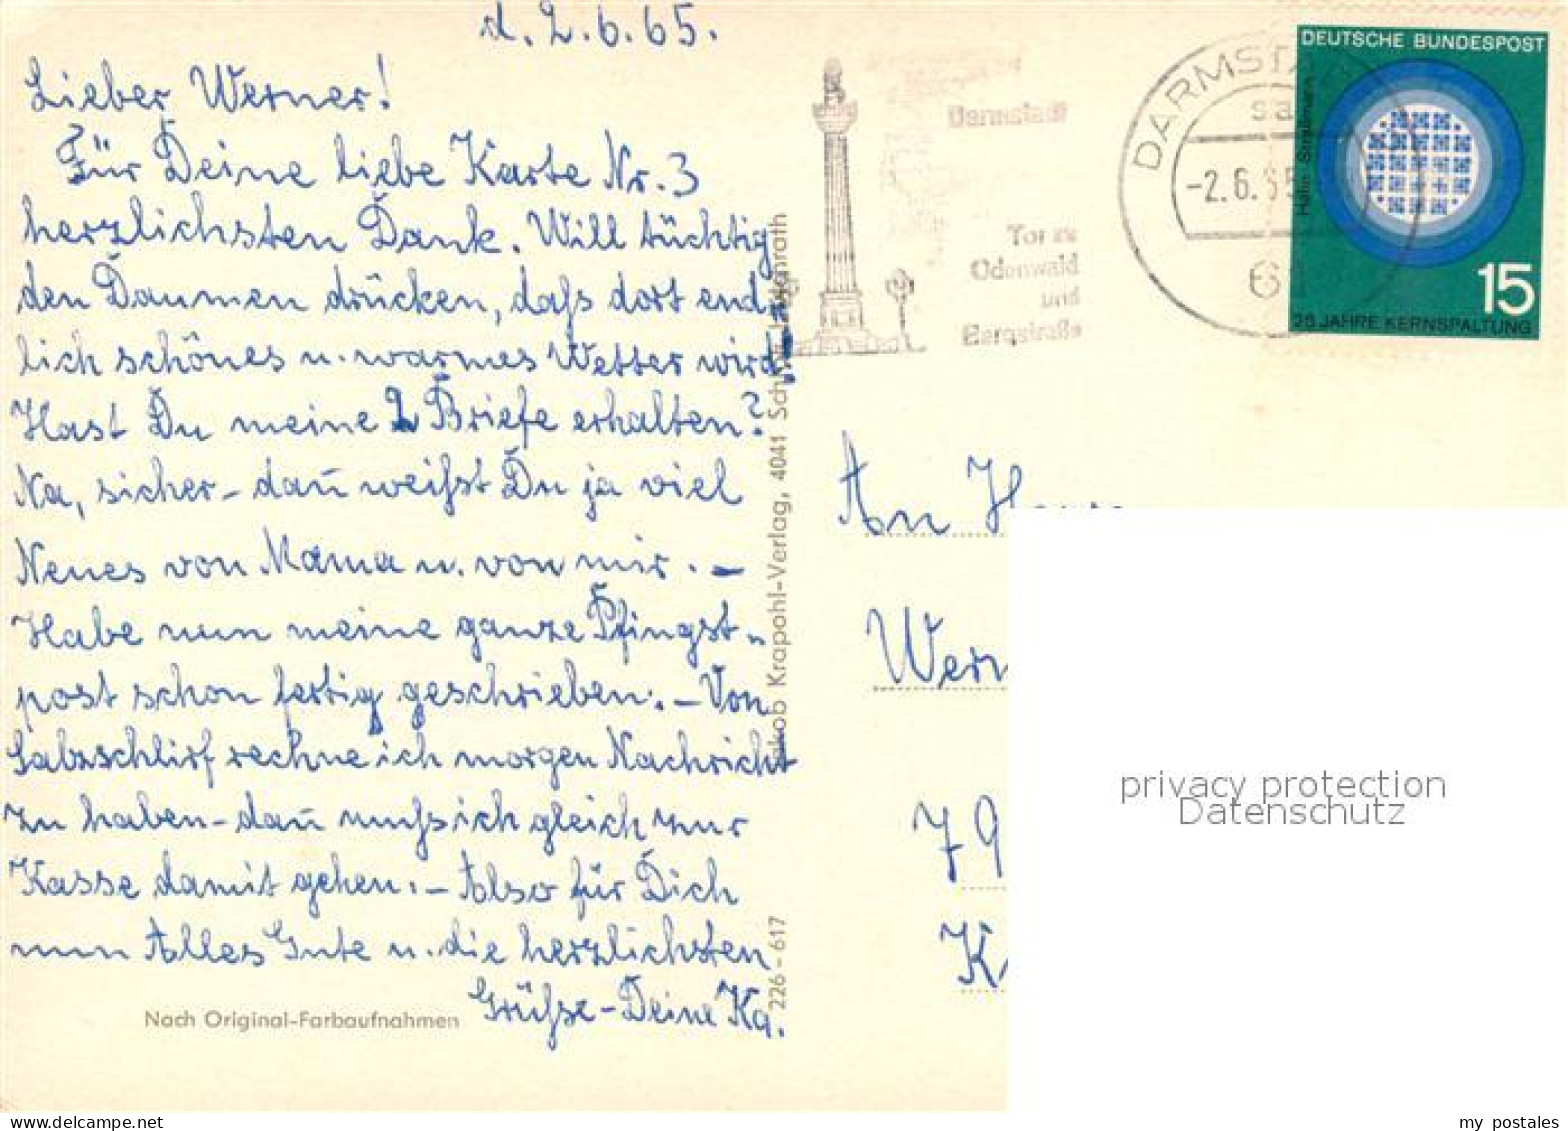 d. 2.6.65.
Lieber Werner!
Für Deine liebe Karte Nr. 3
herzlichsten Dank. Will tüchtig
den Daumen drücken, daß dort end-
lich schönes u. warmes Wetter wird!
Hast Du meine 2 Briefe erhalten?
Na, sicher – dañ weißt Du ja viel
Neues von Mama u. von mir. –
Habe nun meine ganze Pfingst-
post schon fertig geschrieben. – Von
Salzschlirf rechne ich morgen Nachricht
zu haben – dañ muß ich gleich zur
Kasse damit gehen. – Also für Dich
nun Alles Gute u. die herzlichsten
Grüße – Deine Ka.
Nach Original-Farbaufnahmen
226 – 617
Jakob Krapohl-Verlag, 4041
Darmstadt
Tor zu
Odenwald
und
Bergstraße
DARMSTADT
-2.6.65
61
DEUTSCHE BUNDESPOST
Hahn-Straßmann
15
25 JAHRE KERNSPALTUNG
An Herrn
Wern
79
K
privacy protection
Datenschutz
my postales